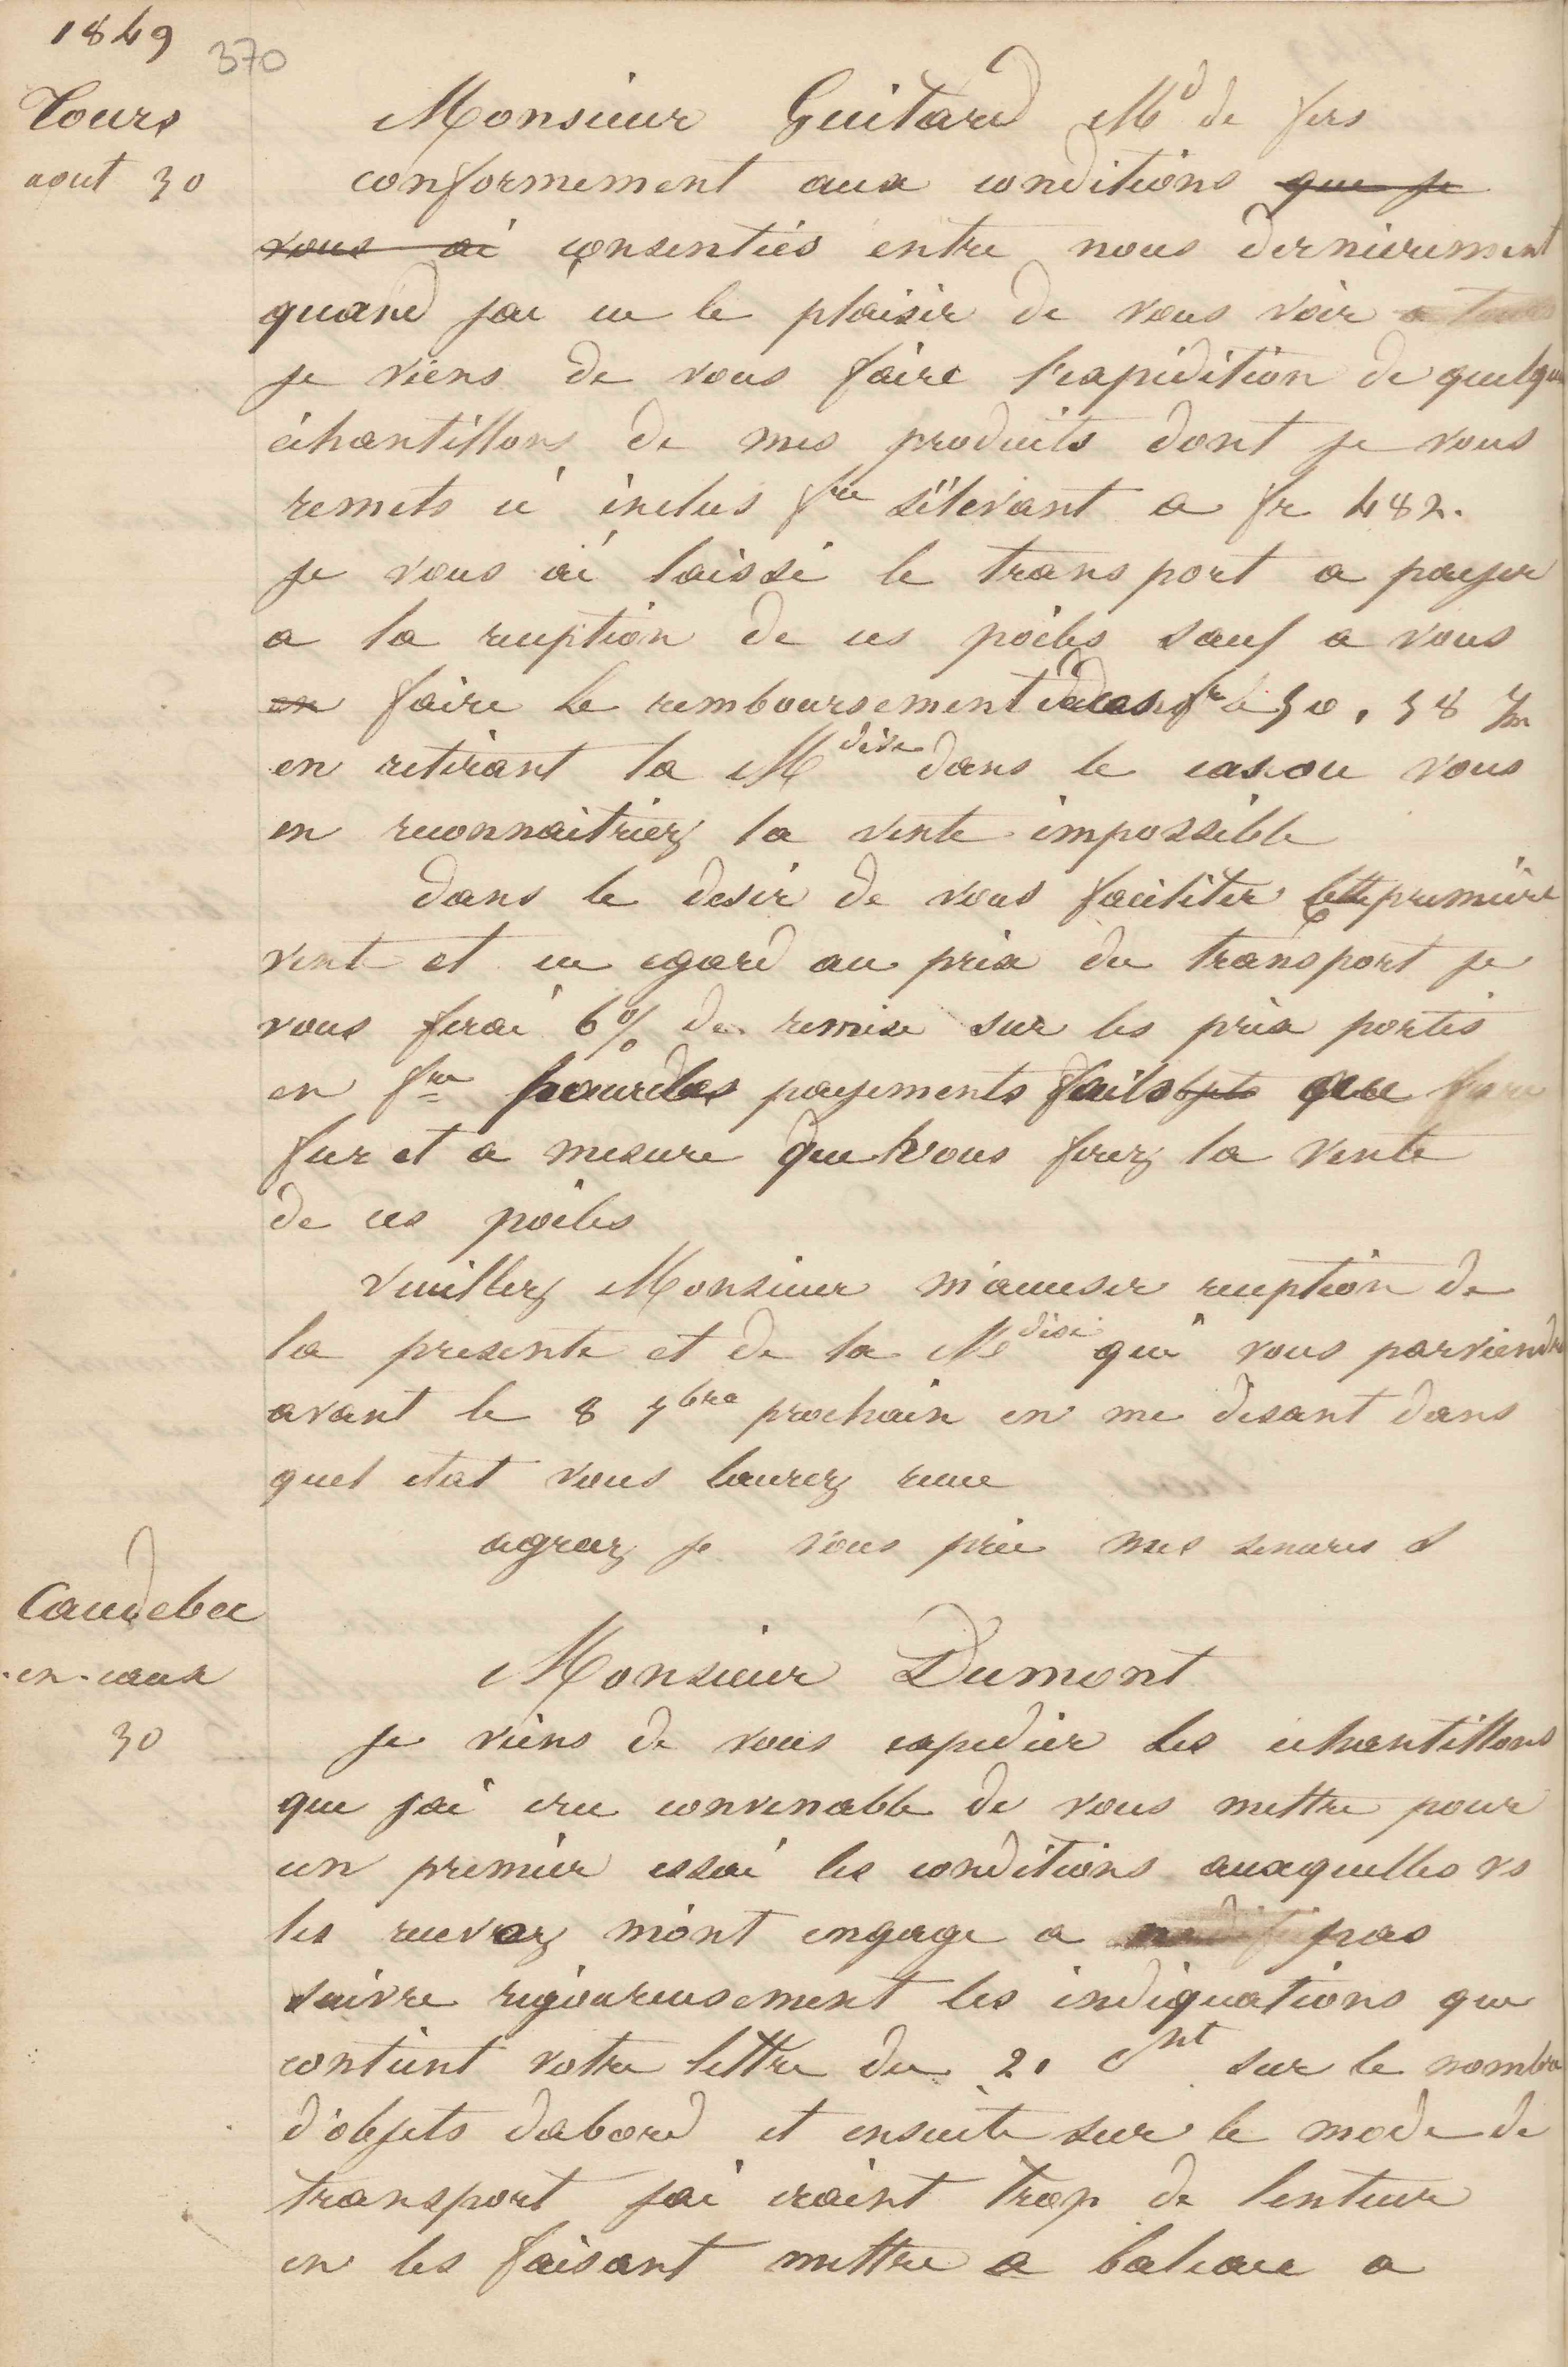 1849
370
Tours
aout 30
Monsieur Guitard Md de fers
conformement aux conditions que je
vous ai consenties entre nous dernierement
quand jai eu le plaisir de vous voir a Tours
je viens de vous faire l'expédition de quelques
échantillons de mes produits dont je vous
remets ci inclus fre s'élevant a fr 482.
je vous ai laissé le transport a payer
a la reception de ces poëles sauf a vous
en faire le remboursement fr 30,38
en retirant la Mdise dans le cas ou vous
en reconnaitriez la vente impossible
dans le desir de vous faciliter cette première
vente et eu egard au prix du transport je
vous ferai 6% de remise sur les prix portés
en fre pour des payements faits au
fur et a mesure que vous ferez la vente
de ces poëles
Veuillez Monsieur m'accuser reception de
la presente et de la Mdise qui vous parviendra
avant le 8 7bre prochain en me disant dans
quel etat vous laurez recue
agreez je vous prie mes sinceres s
Caudebec
-en-caux
30
Monsieur Dumont
je viens de vous expedier les echantillons
que jai cru convenable de vous mettre pour
un premier essai les conditions auxquelles vs
les recevez m'ont engage a pas
suivre rigoureusement les indiquations que
contient votre lettre du 21 Cnt sur le nombre
d'objets dabord et ensuite sur le mode de
transport jai craint trop de lenteur
en les faisant mettre a bateau a